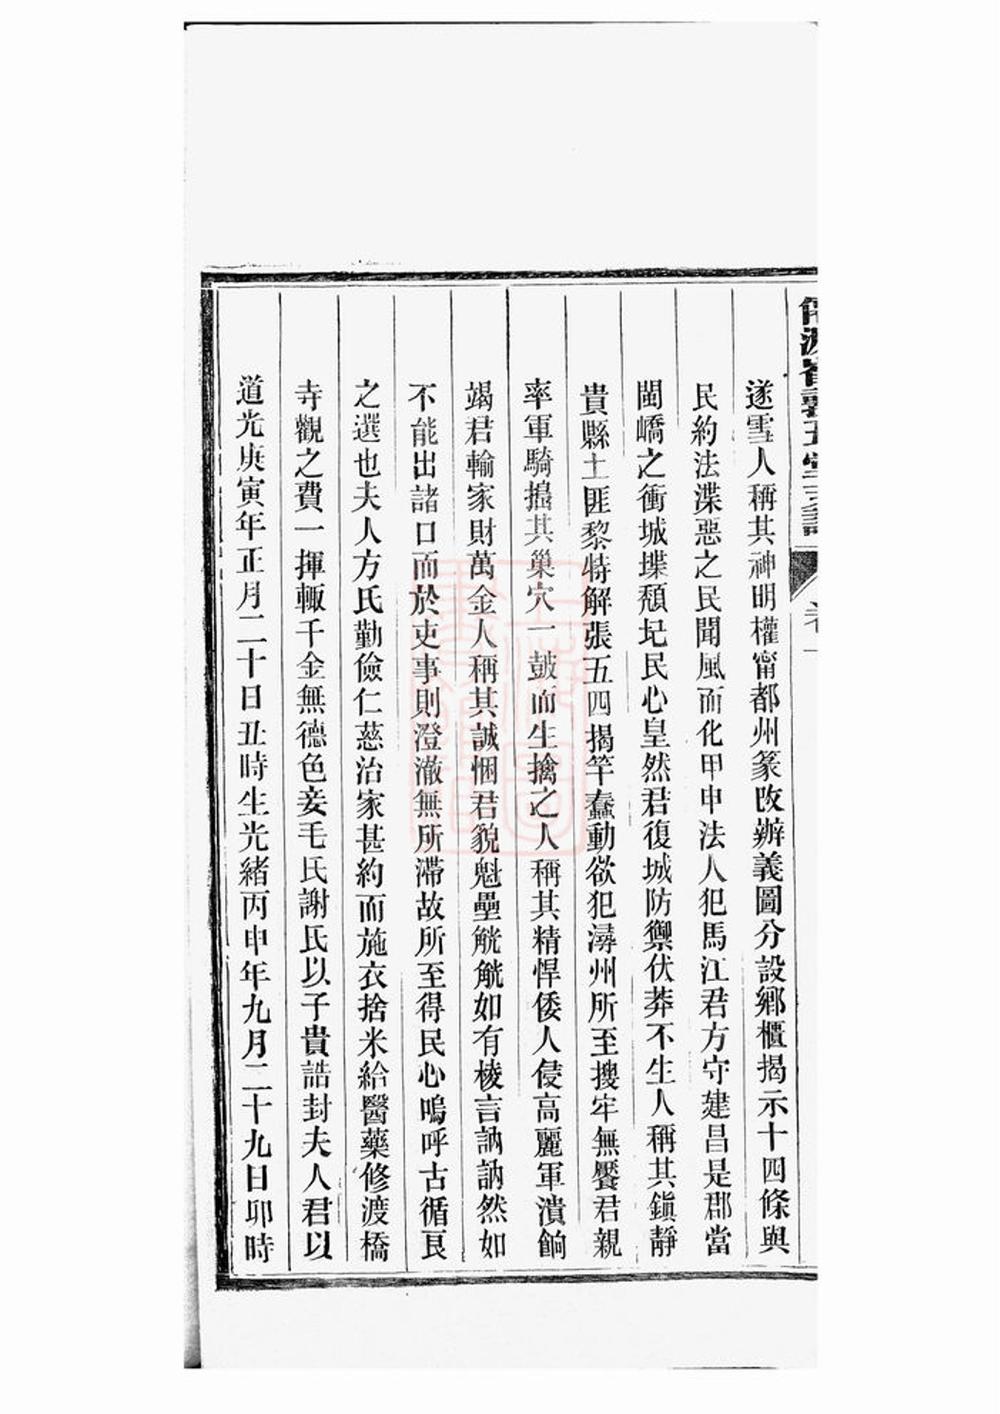 遂雪人稱其神明權甯都州篆改辦義圖分設鄉櫃揭示十四條與
民約法渫惡之民聞風而化甲申法人犯馬江君方守建昌是郡當
閩嶠之衝城堞頹圮民心皇然君復城防禦伏莽不生人稱其鎭靜
貴縣土匪黎特解張五四揭竿蠢動欲犯潯州所至搜牢無饜君親
率軍騎搗其巢穴一鼓而生擒之人稱其精悍倭人侵高麗軍潰餉
竭君輸家財萬金人稱其誠悃君貌魁壘觥觥如有棱言訥訥然如
不能出諸口而於吏事則澄澈無所滯故所至得民心嗚呼古循良
之選也夫人方氏勤儉仁慈治家甚約而施衣捨米給醫藥修渡橋
寺觀之費一揮輙千金無德色妾毛氏謝氏以子貴誥封夫人君以
道光庚寅年正月二十日丑時生光緒丙申年九月二十九日卯時